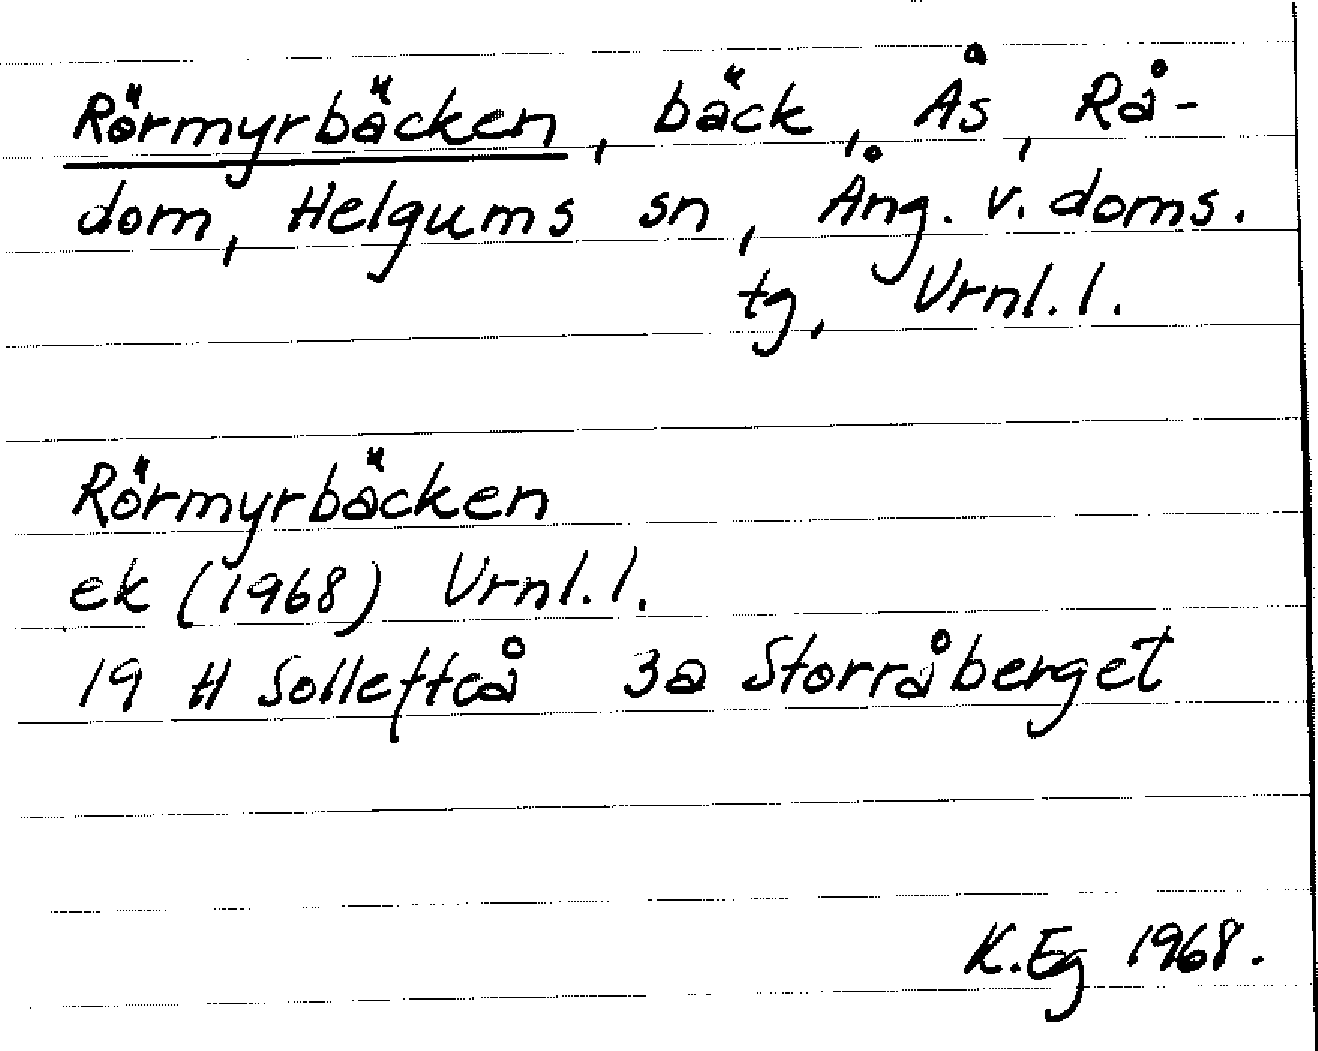 Rörmyrbäcken, bäck, Ås, Rå-
dom, Helgums sn, Ång. v. doms.
tg, Vrnl. l.
Rörmyrbäcken
ek (1968) Vrnl. l.
19 H Sollefteå 3a Storråberget
K. Eg 1968.